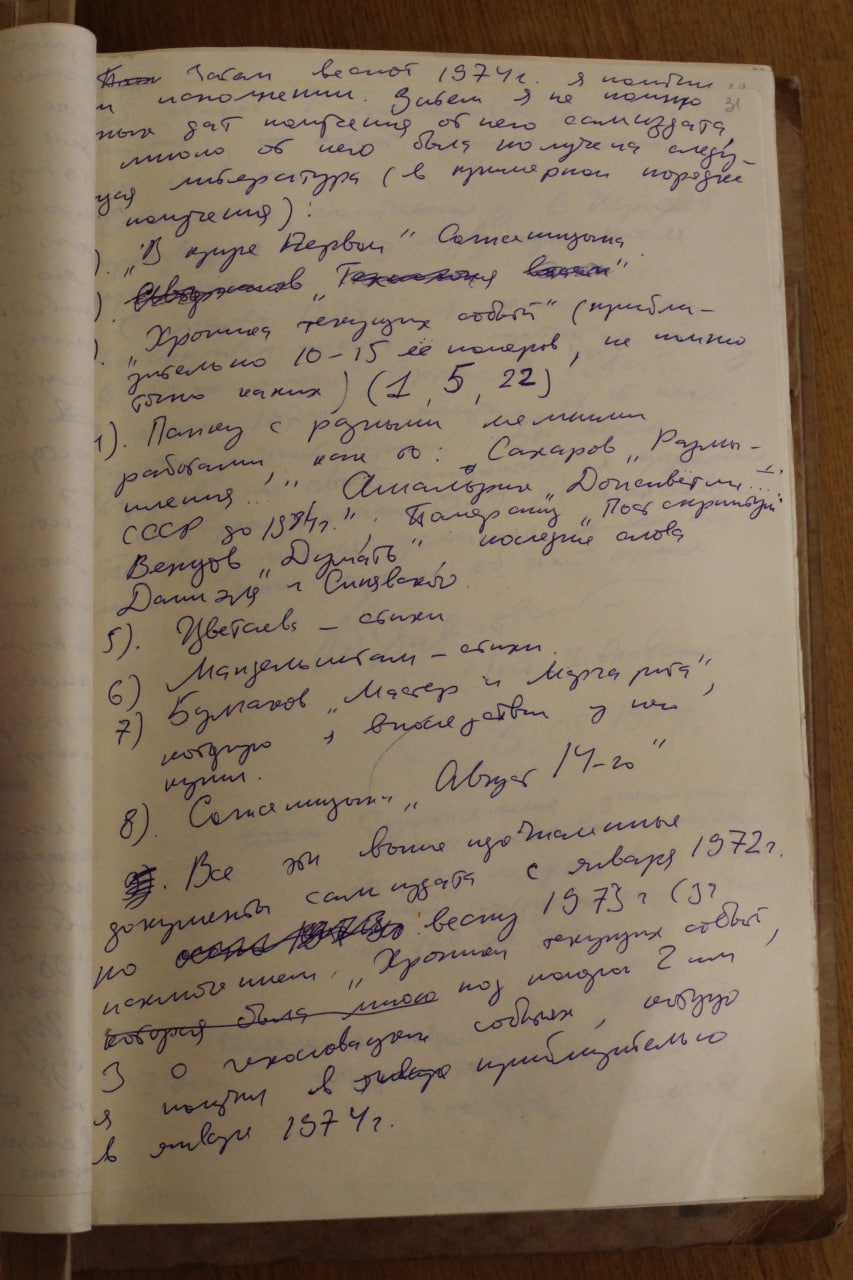 Затем весной 1974 г. я получил
и исполнении. Затем я не помню 31
ных дат получения от него самиздата,
мною от него была получена следу-
щая литература (в примерном порядке
получения):
). "В круге Первом" Солженицына
)
). "Хроника текущих событ" (прибли-
зительно 10-15 её номеров, не помню
точно каких) (1, 5, 22)
). Папку с разными мелкими
работами, как то: Сахаров "Размы-
шления...", Амальрик "Доживёт ли...
СССР до 1984г.", Померанц "Постскриптум"
Венцов "Думать" последние слова
Даниэля и Синявского.
5). Цветаева – стихи
6) Мандельштам – стихи.
7) Булгаков "Мастер и Маргарита",
которую я впоследствии у него
купил.
8). Солженицын "Август 14-го"
. Все эти выше
документы самиздата с января 1972г.
по весну 1973 г (за
исключением "Хроники текущих событ",
которая была мною под номером 2 или
3 о чехословацких событиях, которую
я получил в январе приблизительно
в январе 1974г.